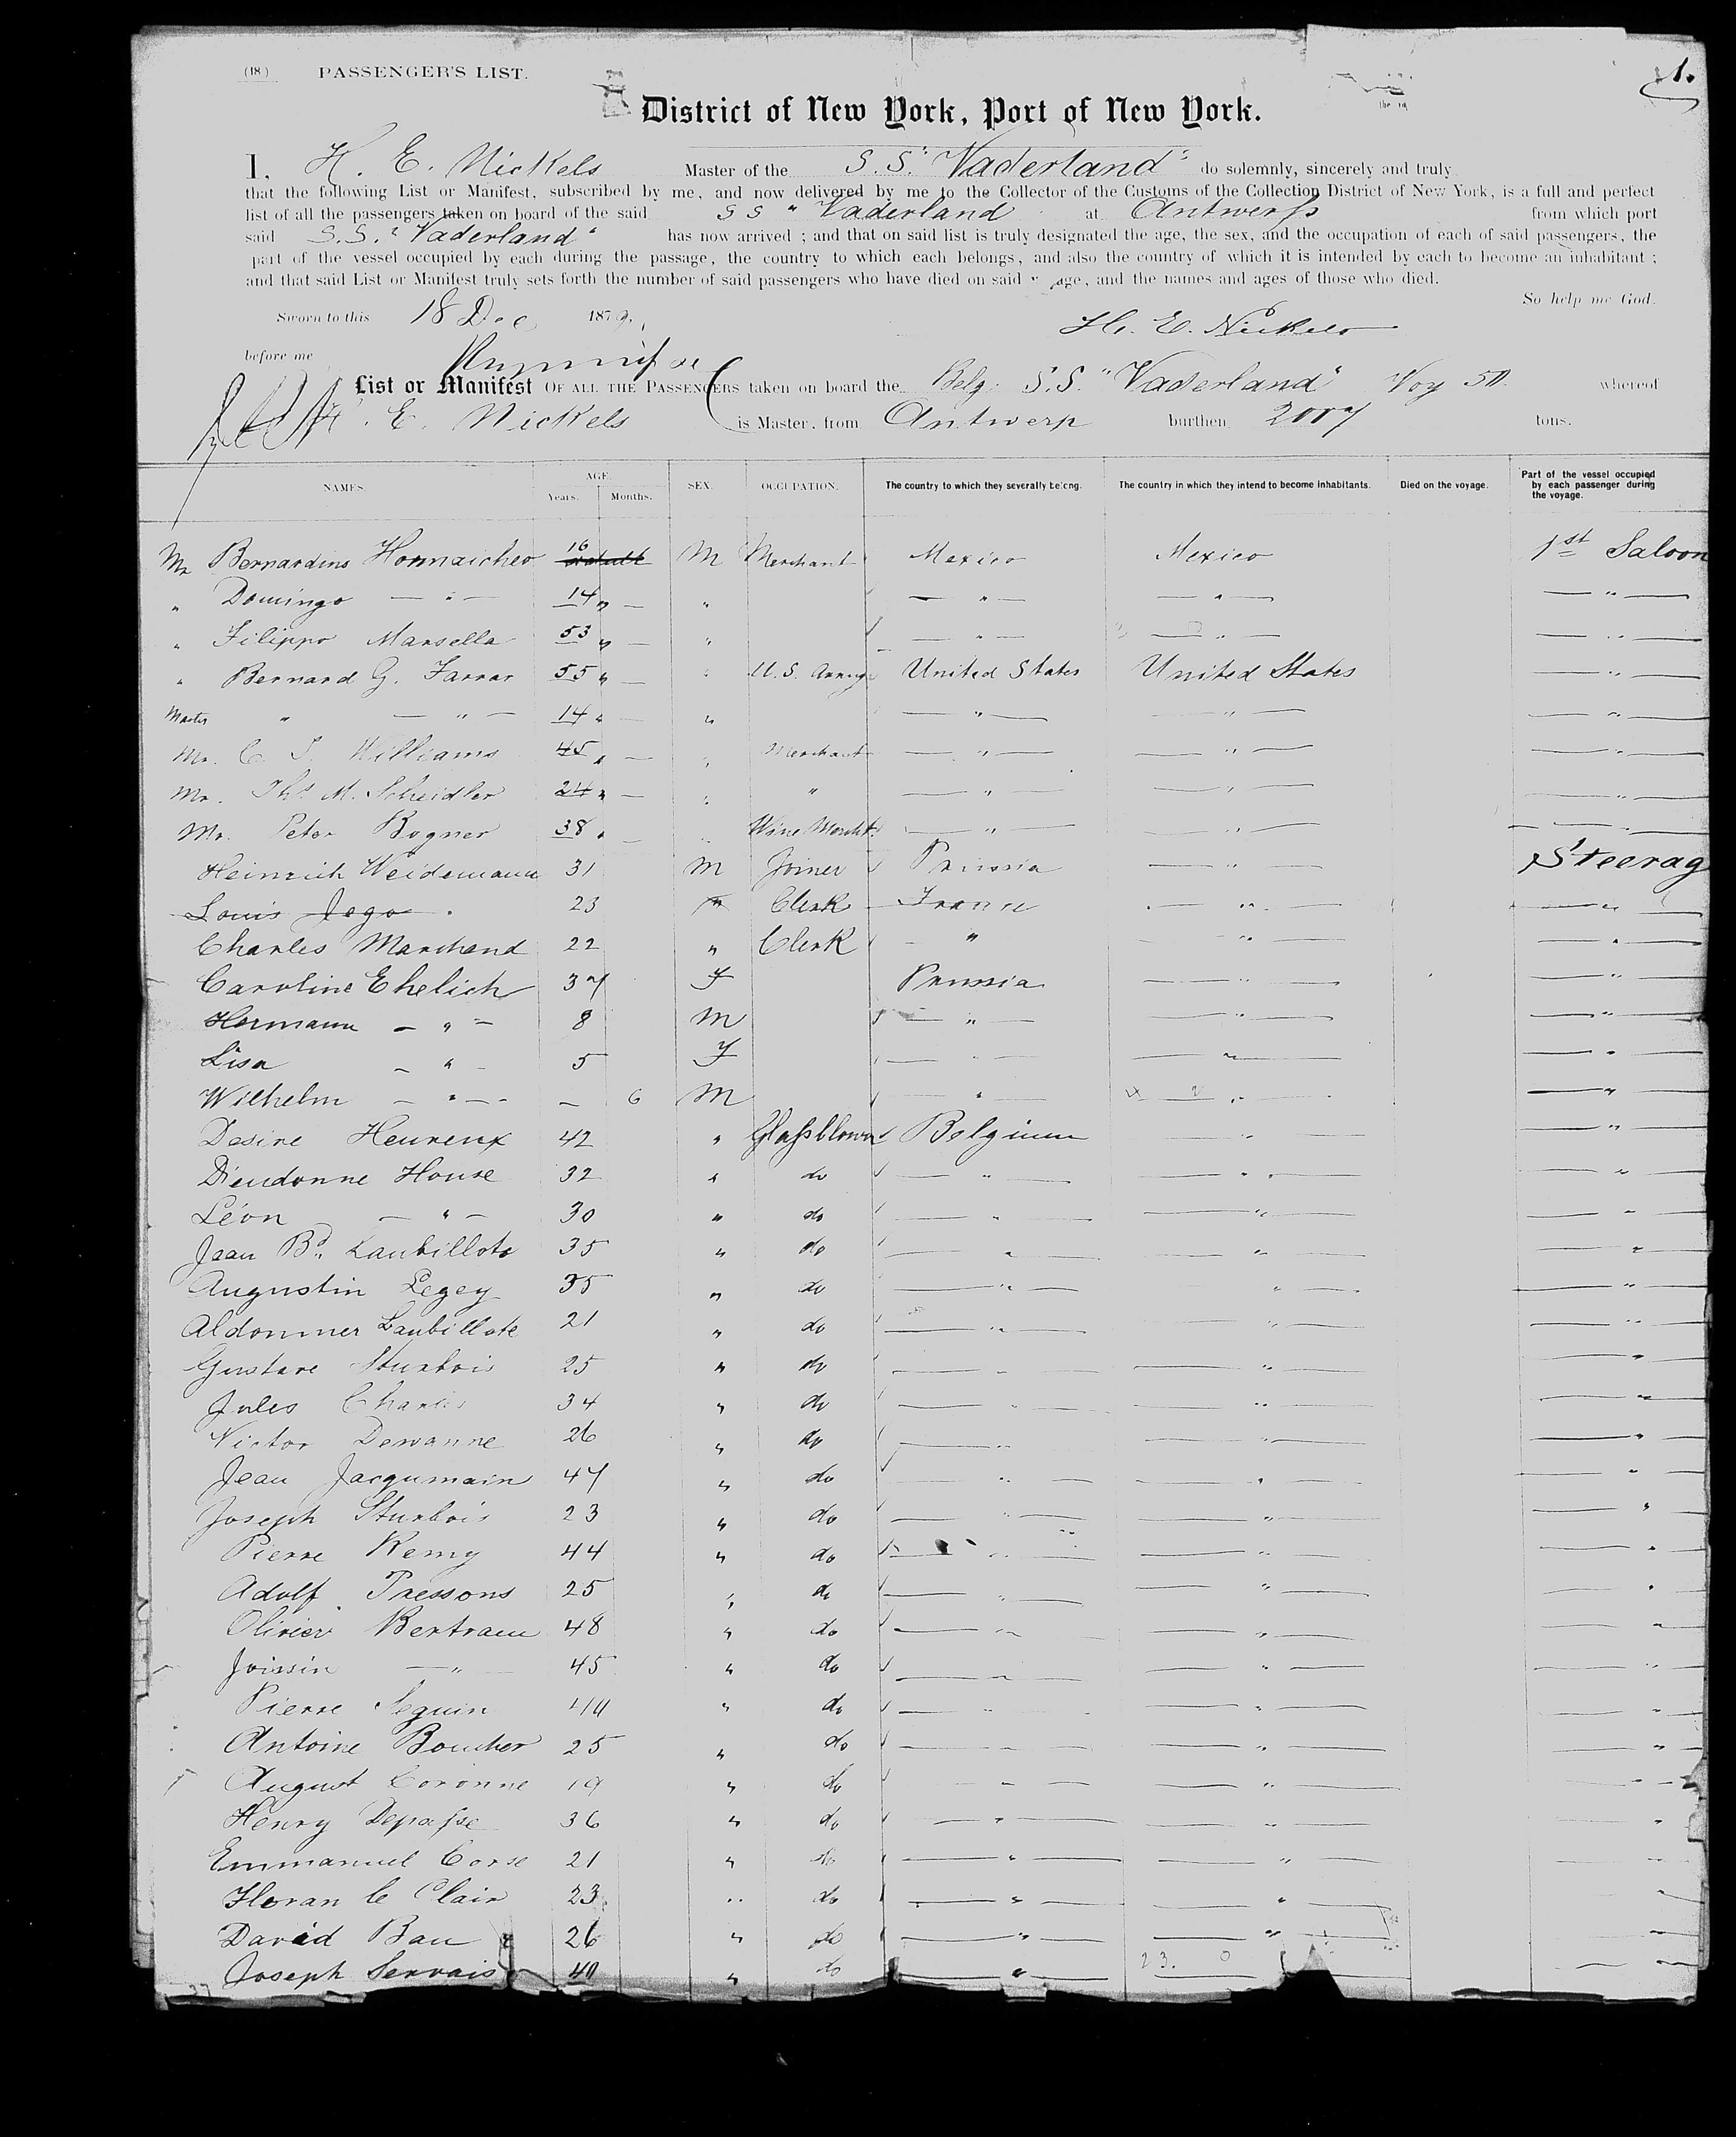 (18) PASSENGER'S LIST. 1.
District of New York, Port of New York.
I, H. E. Nickels Master of the S.S. "Vaderland" do solemnly, sincerely and truly
that the following List or Manifest, subscribed by me, and now delivered by me to the Collector of the Customs of the Collection District of New York, is a full and perfect
list of all the passengers taken on board of the said S S "Vaderland at Antwerp from which port
said S.S. "Vaderland" has now arrived ; and that on said list is truly designated the age, the sex, and the occupation of each of said passengers, the
part of the vessel occupied by each during the passage, the country to which each belongs, and also the country of which it is intended by each to become an inhabitant ;
and that said List or Manifest truly sets forth the number of said passengers who have died on said age, and the names and ages of those who died.
So help me God.
Sworn to this 18 Dec 1879. H. E. Nickels
before me
List or Manifest OF ALL THE PASSENGERS taken on board the Belg: S.S. "Vaderland" Voy 50 whereof
H. E. Nickels is Master, from Antwerp burthen 2007 tons.
NAMES. AGE. Years. Months. SEX. OCCUPATION. The country to which they severally belong. The country in which they intend to become inhabitants. Died on the voyage. Part of the vessel occupied by each passenger during the voyage.
Mr Bernardino 16 M Merchant Mexico Mexico 1st Saloon
" Domingo — " — 14 " — " — " — — " — — " —
" Filippo Marsella 53 " — " — " — — " — — " —
" Bernard G. Farrar 55 " — " U.S. Army United States United States — " —
Master " — " — 14 " — " — " — — " — — " —
Mr. C. S. Williams 45 " — " Merchant — " — — " — — " —
Mr. Ths. M. Scheidler 24 " — " " — " — — " — — " —
Mr. Peter Bogner 38 " — " Wine Mercht. — " — — " — — " —
Heinrich Weidemann 31 M Joiner Prussia — " — Steerag
Louis Jego 23 " Clerk France — " — — " —
Charles Marchand 22 " Clerk — " — " — — " —
Caroline Ehelich 37 F Prussia — " — — " —
Hermann — " — 8 M — " — — " — — " —
Lisa — " — 5 F — " — — " — — " —
Wilhelm — " — — 6 M — " — — " — — " —
Desire Heureux 42 " Glassblower Belgium — " — — " —
Dieudonne House 32 " do — " — — " — — " —
Léon — " — 30 " do — " — — " — — " —
Jean Bd. Laubillote 35 " do — " — — " — — " —
Augustin Legey 35 " do — " — " — — " —
Aldommer Laubillote 21 " do — " — " — — " —
Gustave Sturbois 25 " do — " — — " — — " —
Jules Charles 34 " do — " — — " — — " —
Victor Dewanne 26 " do — " — — " — — " —
Jean Jacqumain 47 " do — " — — " — — " —
Joseph Sturbois 23 " do — " — — " — — "
Pierre Remy 44 " do — " — — " — — "
Adolf Pressons 25 " do — " — — " — — "
Olivier Bertram 48 " do — " — — " — — "
Joissin — " — 45 " do — " — — " — — "
Pierre Seguin 44 " do — " — — " — — "
Antoine Boucher 25 " do — " — — " — — "
August Coronne 19 " do — " — — " — — "
Henry Depasse 36 " do — " — — " — "
Emmanuel Corse 21 " do — " — — " — — "
Floran le Clair 23 " do — " — — " — "
David Bau 26 " do — " — — " — "
Joseph Servais 40 " do — " — 23. 0 — "